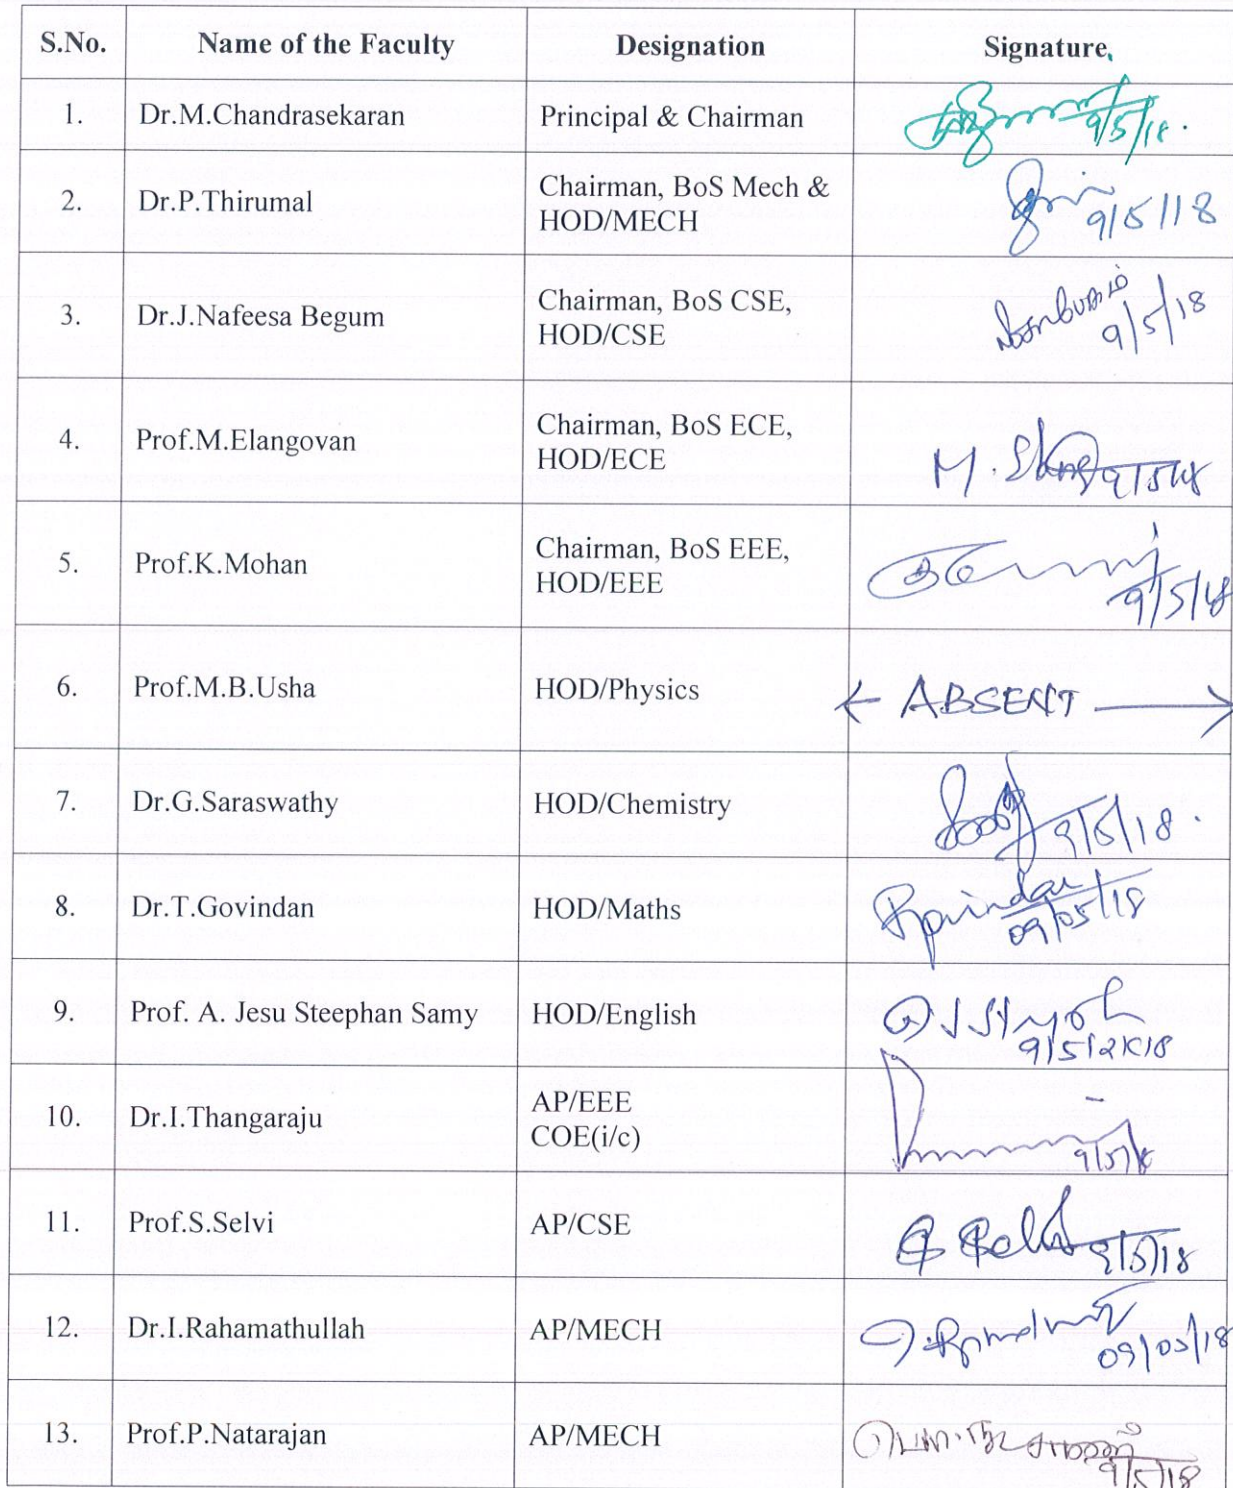 S.No. Name of the Faculty Designation Signature
1. Dr.M.Chandrasekaran Principal & Chairman 9/5/18.
2. Dr.P.Thirumal Chairman, BoS Mech &
HOD/MECH 9/5/18
3. Dr.J.Nafeesa Begum Chairman, BoS CSE,
HOD/CSE 9/5/18
4. Prof.M.Elangovan Chairman, BoS ECE,
HOD/ECE M. 9/5/18
5. Prof.K.Mohan Chairman, BoS EEE,
HOD/EEE 9/5/18
6. Prof.M.B.Usha HOD/Physics ← ABSENT →
7. Dr.G.Saraswathy HOD/Chemistry 9/5/18.
8. Dr.T.Govindan HOD/Maths
09/05/18
9. Prof. A. Jesu Steephan Samy HOD/English
9/5/2K18
10. Dr.I.Thangaraju AP/EEE
COE(i/c) 9/5/18
11. Prof.S.Selvi AP/CSE 9/5/18
12. Dr.I.Rahamathullah AP/MECH 09/05/18
13. Prof.P.Natarajan AP/MECH
9/5/18